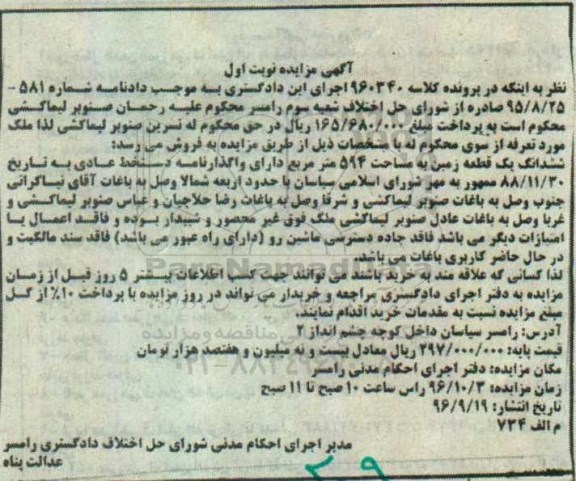 آگهی مزایده نوبت اول
نظر به اینکه در پرونده کلاسه ۹۶۰۳۴۰ اجرای این دادگستری به موجب دادنامه شماره ۵۸۱ -
۹۵/۸/۲۵ صادره از شورای حل اختلاف شعبه سوم رامسر محکوم علیه رحمان صنوبر لیماکشی
محکوم است به پرداخت مبلغ ۱۶۵/۶۸۰/۰۰۰ ریال در حق محکوم له نسرین صنوبر لیماکشی لذا ملک
مورد تعرفه از سوی محکوم له با مشخصات ذیل از طریق مزایده به فروش می رسد:
ششدانگ یک قطعه زمین به مساحت ۵۹۴ متر مربع دارای واگذارنامه دستخط عادی به تاریخ
۸۸/۱۱/۳۰ ممهور به مهر شورای اسلامی سیاسان با حدود اربعه شمالا وصل به باغات آقای نیاگرانی
جنوب وصل به باغات صنوبر لیماکشی و شرقا وصل به باغات رضا حلاجیان و عباس صنوبر لیماکشی و
غربا وصل به باغات عادل صنوبر لیماکشی ملک فوق غیر محصور و شیبدار بوده و فاقد اعمال یا
امتیازات دیگر می باشد فاقد جاده دسترسی ماشین رو (دارای راه عبور می باشد) فاقد سند مالکیت و
در حال حاضر کاربری باغات می باشد.
لذا کسانی که علاقه مند به خرید باشند می توانند جهت کسب اطلاعات بیشتر ۵ روز قبل از زمان
مزایده به دفتر اجرای دادگستری مراجعه و خریدار می تواند در روز مزایده با پرداخت ۱۰٪ از کل
مبلغ مزایده نسبت به مقدمات خرید اقدام نمایند.
آدرس: رامسر سیاسان داخل کوچه چشم انداز ۲
قیمت پایه: ۲۹۷/۰۰۰/۰۰۰ ریال معادل بیست و نه میلیون و هفتصد هزار تومان
مکان مزایده: دفتر اجرای احکام مدنی رامسر
زمان مزایده: ۹۶/۱۰/۳ راس ساعت ۱۰ صبح تا ۱۱ صبح
تاریخ انتشار: ۹۶/۹/۱۹
م الف ۷۳۴
مدیر اجرای احکام مدنی شورای حل اختلاف دادگستری رامسر
عدالت پناه